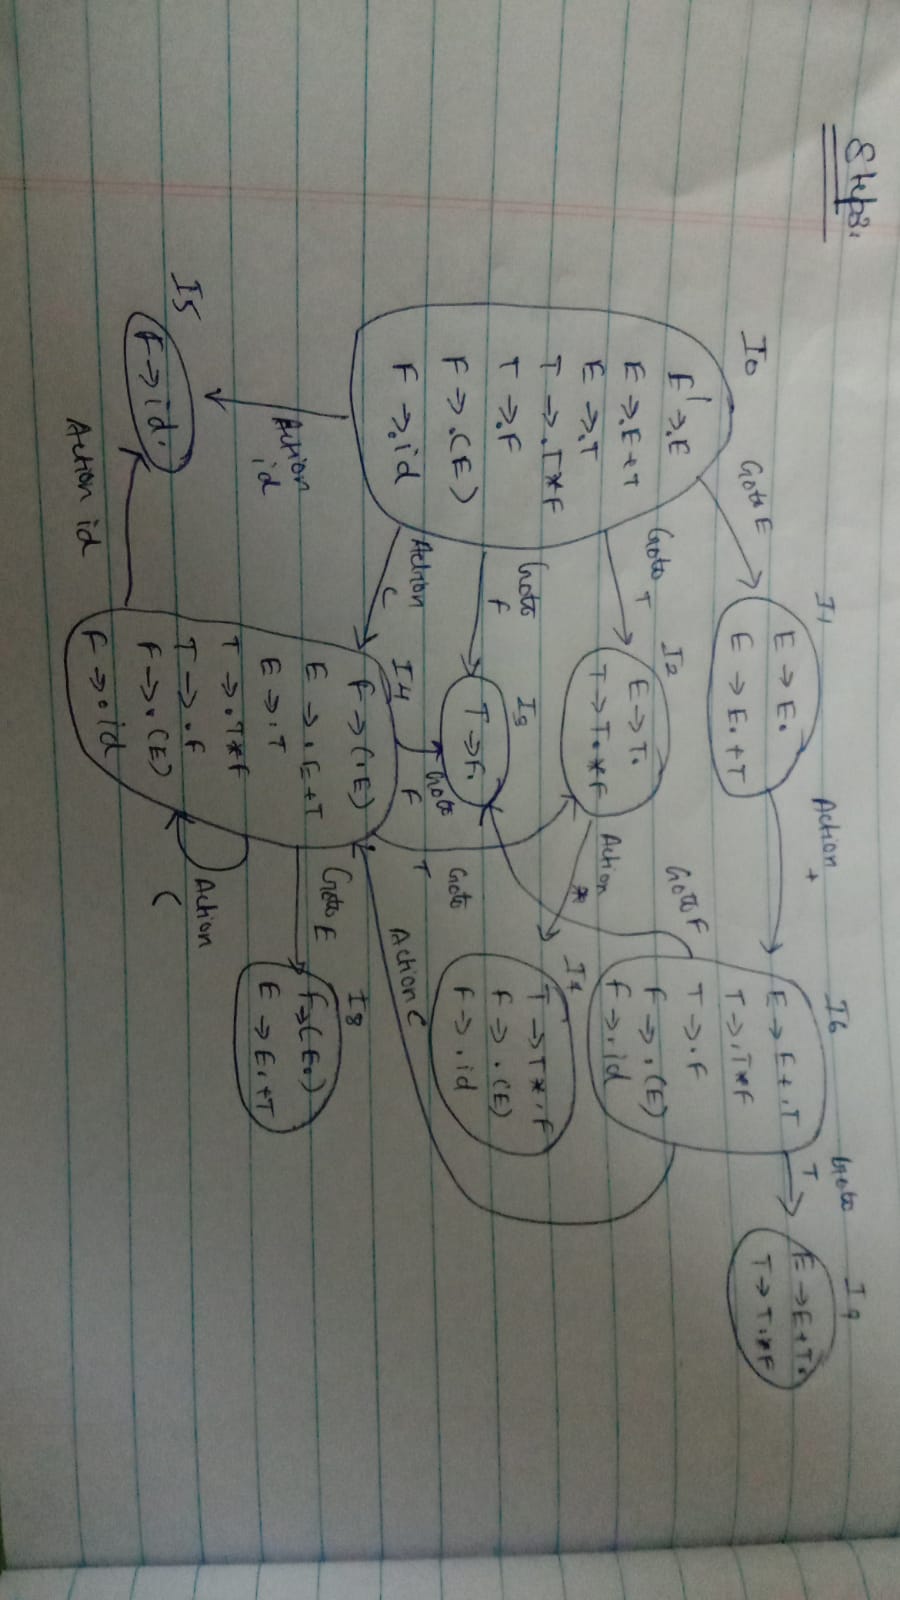 Steps:
I0
E' → .E
E → .E+T
E → .T
T → .T*F
T → .F
F → .(E)
F → .id
Goto E
I1
E → E.
E → E.+T
Action +
I6
E → E+.T
T → .T*F
T → .F
F → .(E)
F → .id
Goto T
I9
E → E+T.
T → T.*F
Goto T
I2
E → T.
T → T.*F
Action *
I7
T → T*.F
F → .(E)
F → .id
Goto F
Goto F
I3
T → F.
Action (
I4
F → (.E)
E → .E+T
E → .T
T → .T*F
T → .F
F → .(E)
F → .id
Goto F
Goto T
Action (
Goto E
I8
F → (E.)
E → E.+T
Action (
Action id
I5
F → id.
Action id